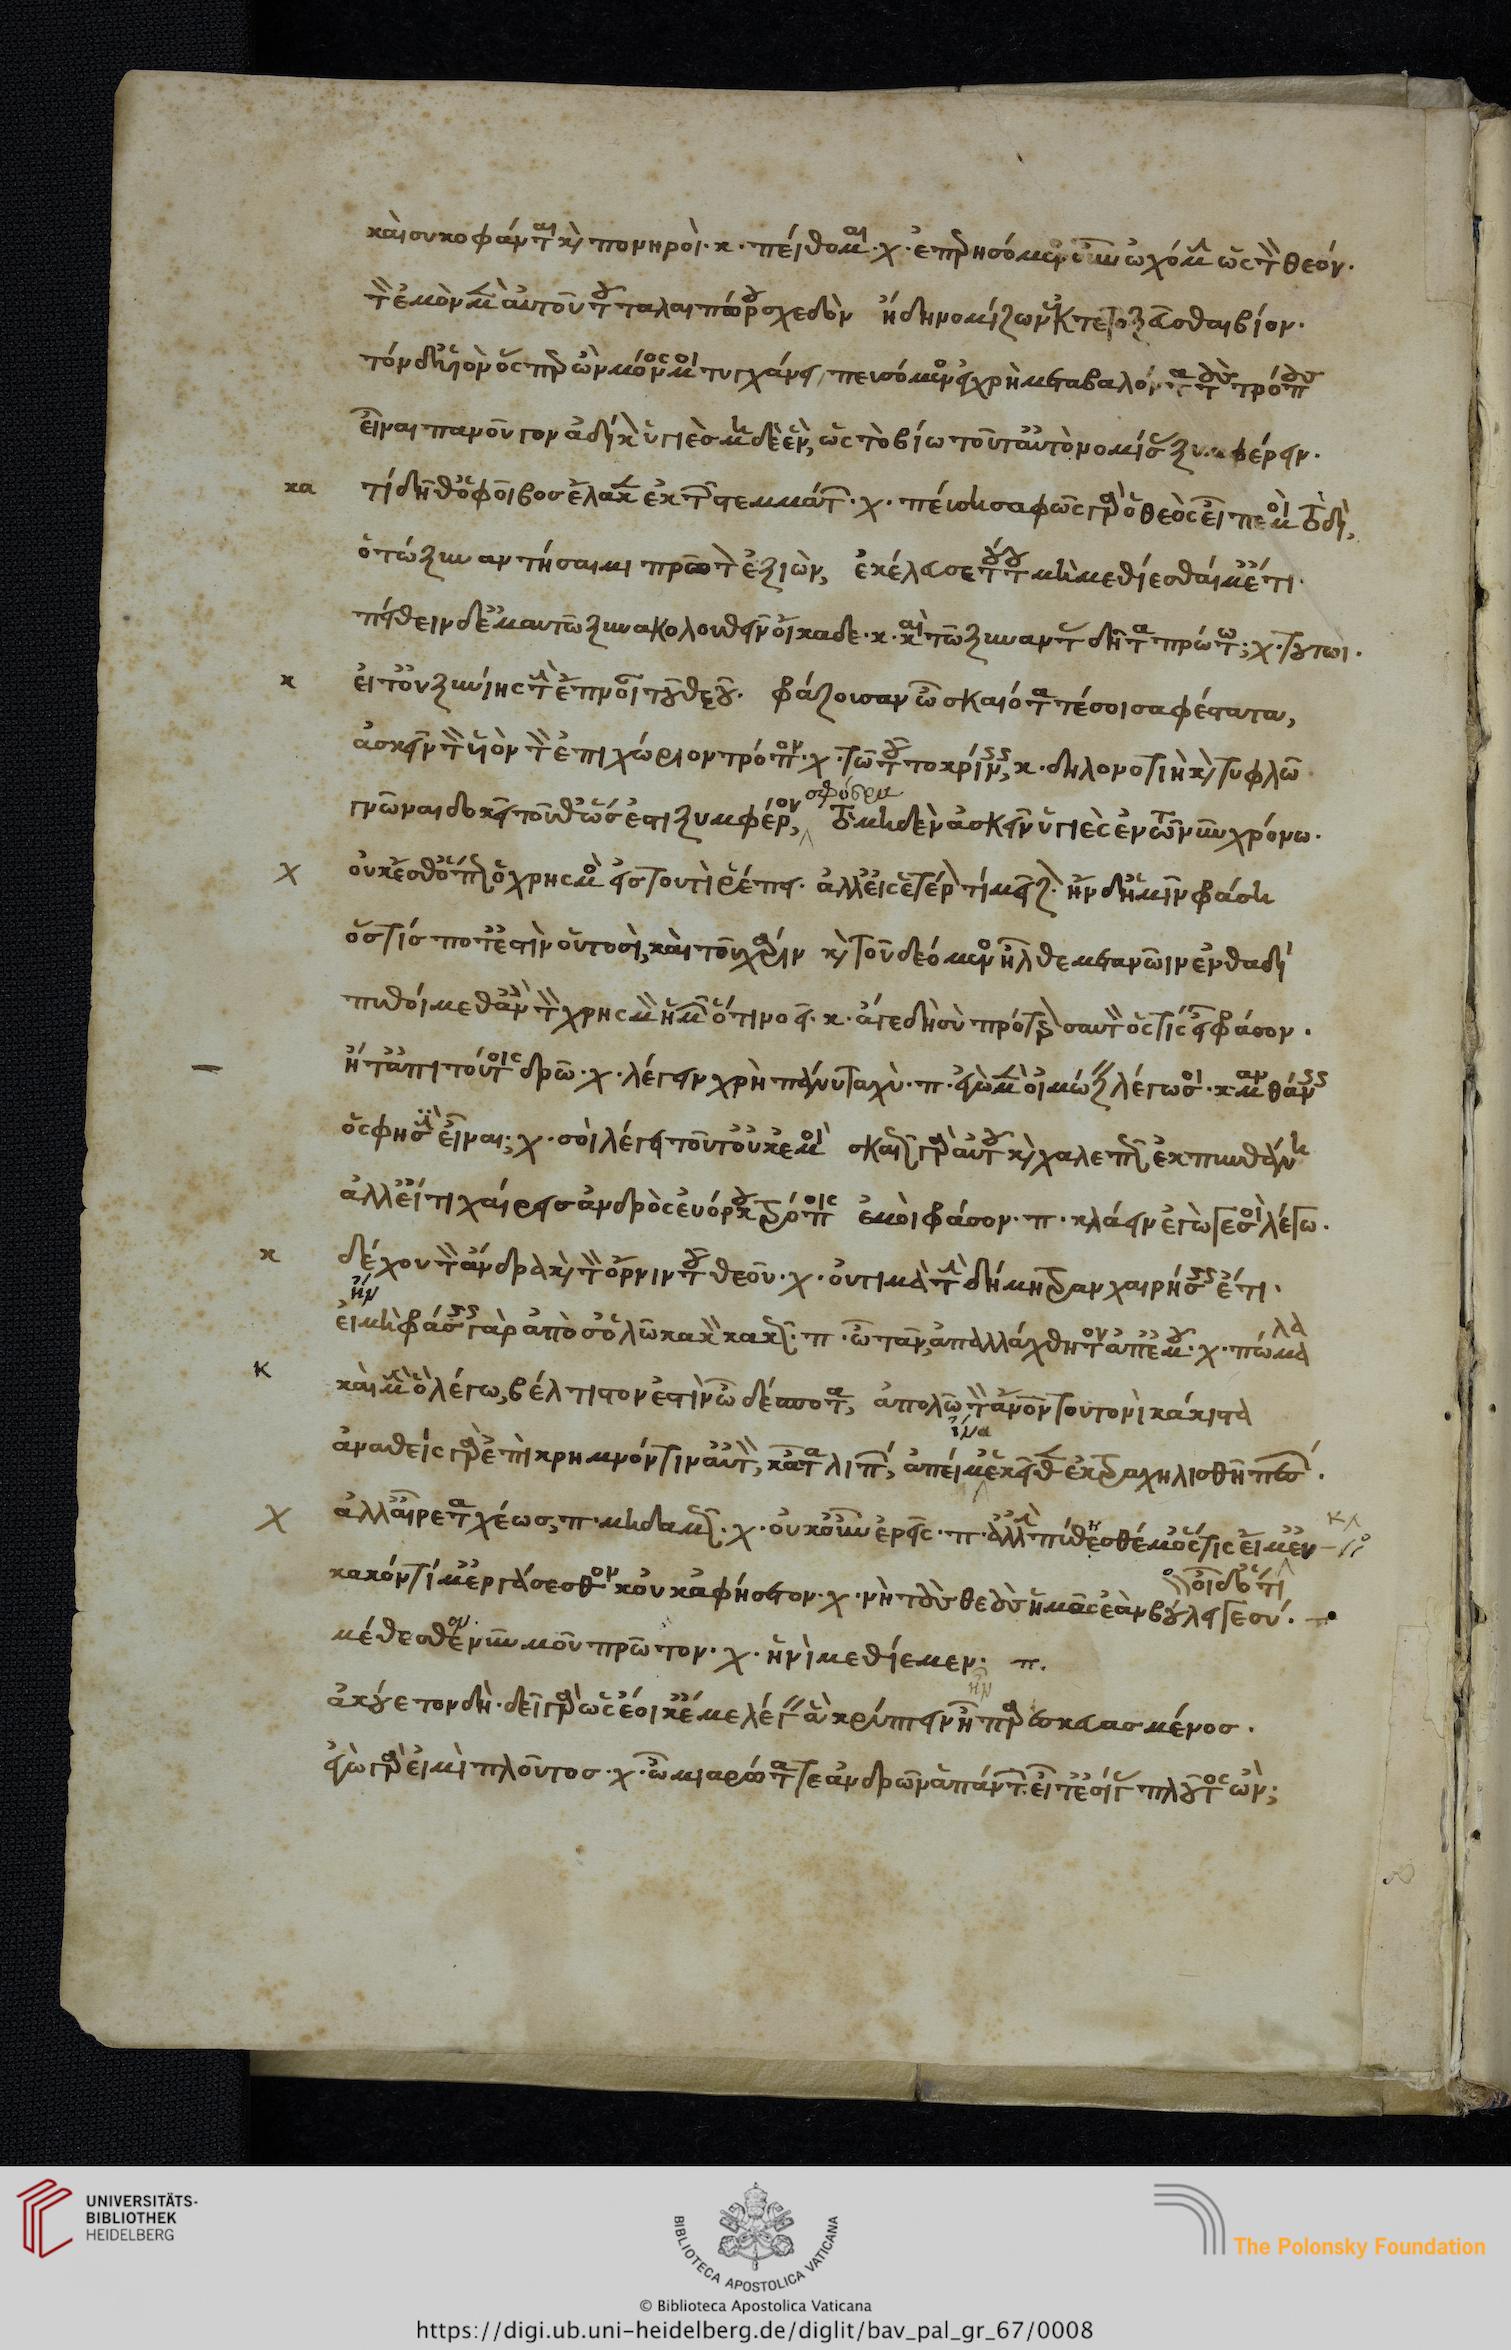 καὶ συκοφάνται καὶ πονηροί· κ· πείθομαι· χ· ἐπερησόμενος οὖν ὠχόμην ὡς τὸν θεόν·
τὸν ἐμὸν μὲν αὐτοῦ τοῦ ταλαιπώρου σχεδὸν ἤδη νομίζων ἐκτετοξεῦσθαι βίον·
τὸν δ' υἱὸν ὅσπερ ὢν μόνος μοι τυγχάνει, πευσόμενος εἰ χρὴ μεταβαλόντα τοὺς τρόπους
εἶναι πανοῦργον ἄδικον ὑγιὲς μηδὲ ἕν, ὡς τῶ βίω τοῦτ' αὐτὸ νομίσας ξυμφέρειν·
κα τί δῆθ' ὁ φοῖβος ἔλακεν ἐκ τῶν στεμμάτων· χ· πεύση σαφῶς γὰρ ὁ θεὸς εἶπέ μοι τοδί,
ὅτω ξυναντήσαιμι πρῶτον ἐξιών, ἐκέλευσε τούτου μὴ μεθίεσθαί μ' ἔτι·
πείθειν δ' ἐμαυτῶ ξυνακολουθεῖν οἴκαδε· κ· καὶ τῶ ξυναντᾶς δῆτα πρώτω; χ· τουτωί·
κ εἶτ' οὐ ξυνίης τὴν ἐπίνοιαν τοῦ θεοῦ· φράζουσαν ὦ σκαιότατέ σοι σαφέστατα,
ἀσκεῖν τὸν υἱὸν τὸν ἐπιχώριον τρόπον· χ· τῶ τοῦτο κρίνεις; κ· δηλονοτιὴ καὶ τυφλῶ
γνῶναι δοκεῖ τοῦθ' ὡς ἐστι ξυμφέρον, σφόδρα τὸ μηδὲν ἀσκεῖν ὑγιὲς ἐν τῶ νῦν χρόνω·
χ οὐκ ἔσθ' ὅπως ὁ χρησμὸς εἰς τουτὶ ῥέπει· ἀλλ' εἰς ἕτερόν τι μεῖζον· ἢν δ' ἡμῖν φράση
ὅστίς ποτ' ἐστὶν οὑτοσὶ, καὶ τοῦ χάριν καὶ τοῦ δεόμενος ἦλθε μετὰ νῶιν ἐνθαδὶ
πυθοίμεθ' ἂν τὸν χρησμὸν ἡμῶν ὅτι νοεῖ· κ· ἄγε δὴ σὺ πρότερον σαυτὸν ὅστις εἶ φράσον·
ἢ τἀπὶ τούτοις δρῶ· χ· λέγειν χρὴ πάνυ ταχύ· π· ἐγὼ μὲν οἰμώζειν λέγω σοι· κ· μανθάνεις
ὅς φησιν εἶναι; χ· σοὶ λέγει τοῦτ' οὐκ ἐμοὶ σκαιῶς γὰρ αὐτοῦ καὶ χαλεπῶς ἐκπυνθάνη
ἀλλ' εἴ τι χαίρεις ἀνδρὸς εὐόρκου τρόποις ἐμοὶ φράσον· π· κλάειν ἐγώγε σοι λέγω·
κ δέχου τὸν ἄνδρα καὶ τὸν ὄρνιν τοῦ θεοῦ· χ· οὔτι μὰ τὴν δήμητραν χαιρήσεις ἔτι·
ἢν
εἰ μὴ φράσεις γὰρ ἀπό σ' ὀλῶ κακὸν κακῶς· π· ὦ τᾶν, ἀπαλλάχθητον ἀπ' ἐμοῦ· χ· πώμαλα
κ καὶ μὴν ὃ λέγω, βέλτιστον ἐστὶν ὦ δέσποτα, ἀπολῶ τὸν ἄνθρωπον τουτονὶ κάκιστα
ἀναθεὶς γὰρ ἐπὶ κρημνόν τιν' αὐτὸν, καταλιπών, ἄπειμ' ἵνα ἐκεῖθεν ἐκτραχηλισθῆ πεσών·
χ ἀλλ' αἶρε ταχέως, π· μηδαμῶς· χ· οὔκουν ἐρεῖς· π· ἀλλ' ἢν πύθησθέ μ' ὅστις εἴμ' ἐὺ
οἶδ' ὅτι
κακόν τί μ' ἐργάσεσθον κοὐκ ἀφήσετον· χ· νὴ τοὺς θεοὺς ἡμᾶς ἐὰν βούλη γε σύ·
μέθεσθον νῦν μου πρῶτον· χ· ἢν ὶ μεθίεμεν· π·
ἀκούετον δὴ· δεῖ γὰρ ὡς ἔοικέ με λέγειν ἃ κρύπτειν ἦν παρεσκευασμένος·
ἐγὼ γὰρ εἰμὶ πλοῦτος· χ· ὦ μιαρώτατε ἀνδρῶν ἁπάντων· εἶτ' ἐσίγας πλοῦτος ὤν;
UNIVERSITÄTS-
BIBLIOTHEK
HEIDELBERG
BIBLIOTECA APOSTOLICA VATICANA
The Polonsky Foundation
© Biblioteca Apostolica Vaticana
https://digi.ub.uni-heidelberg.de/diglit/bav_pal_gr_67/0008